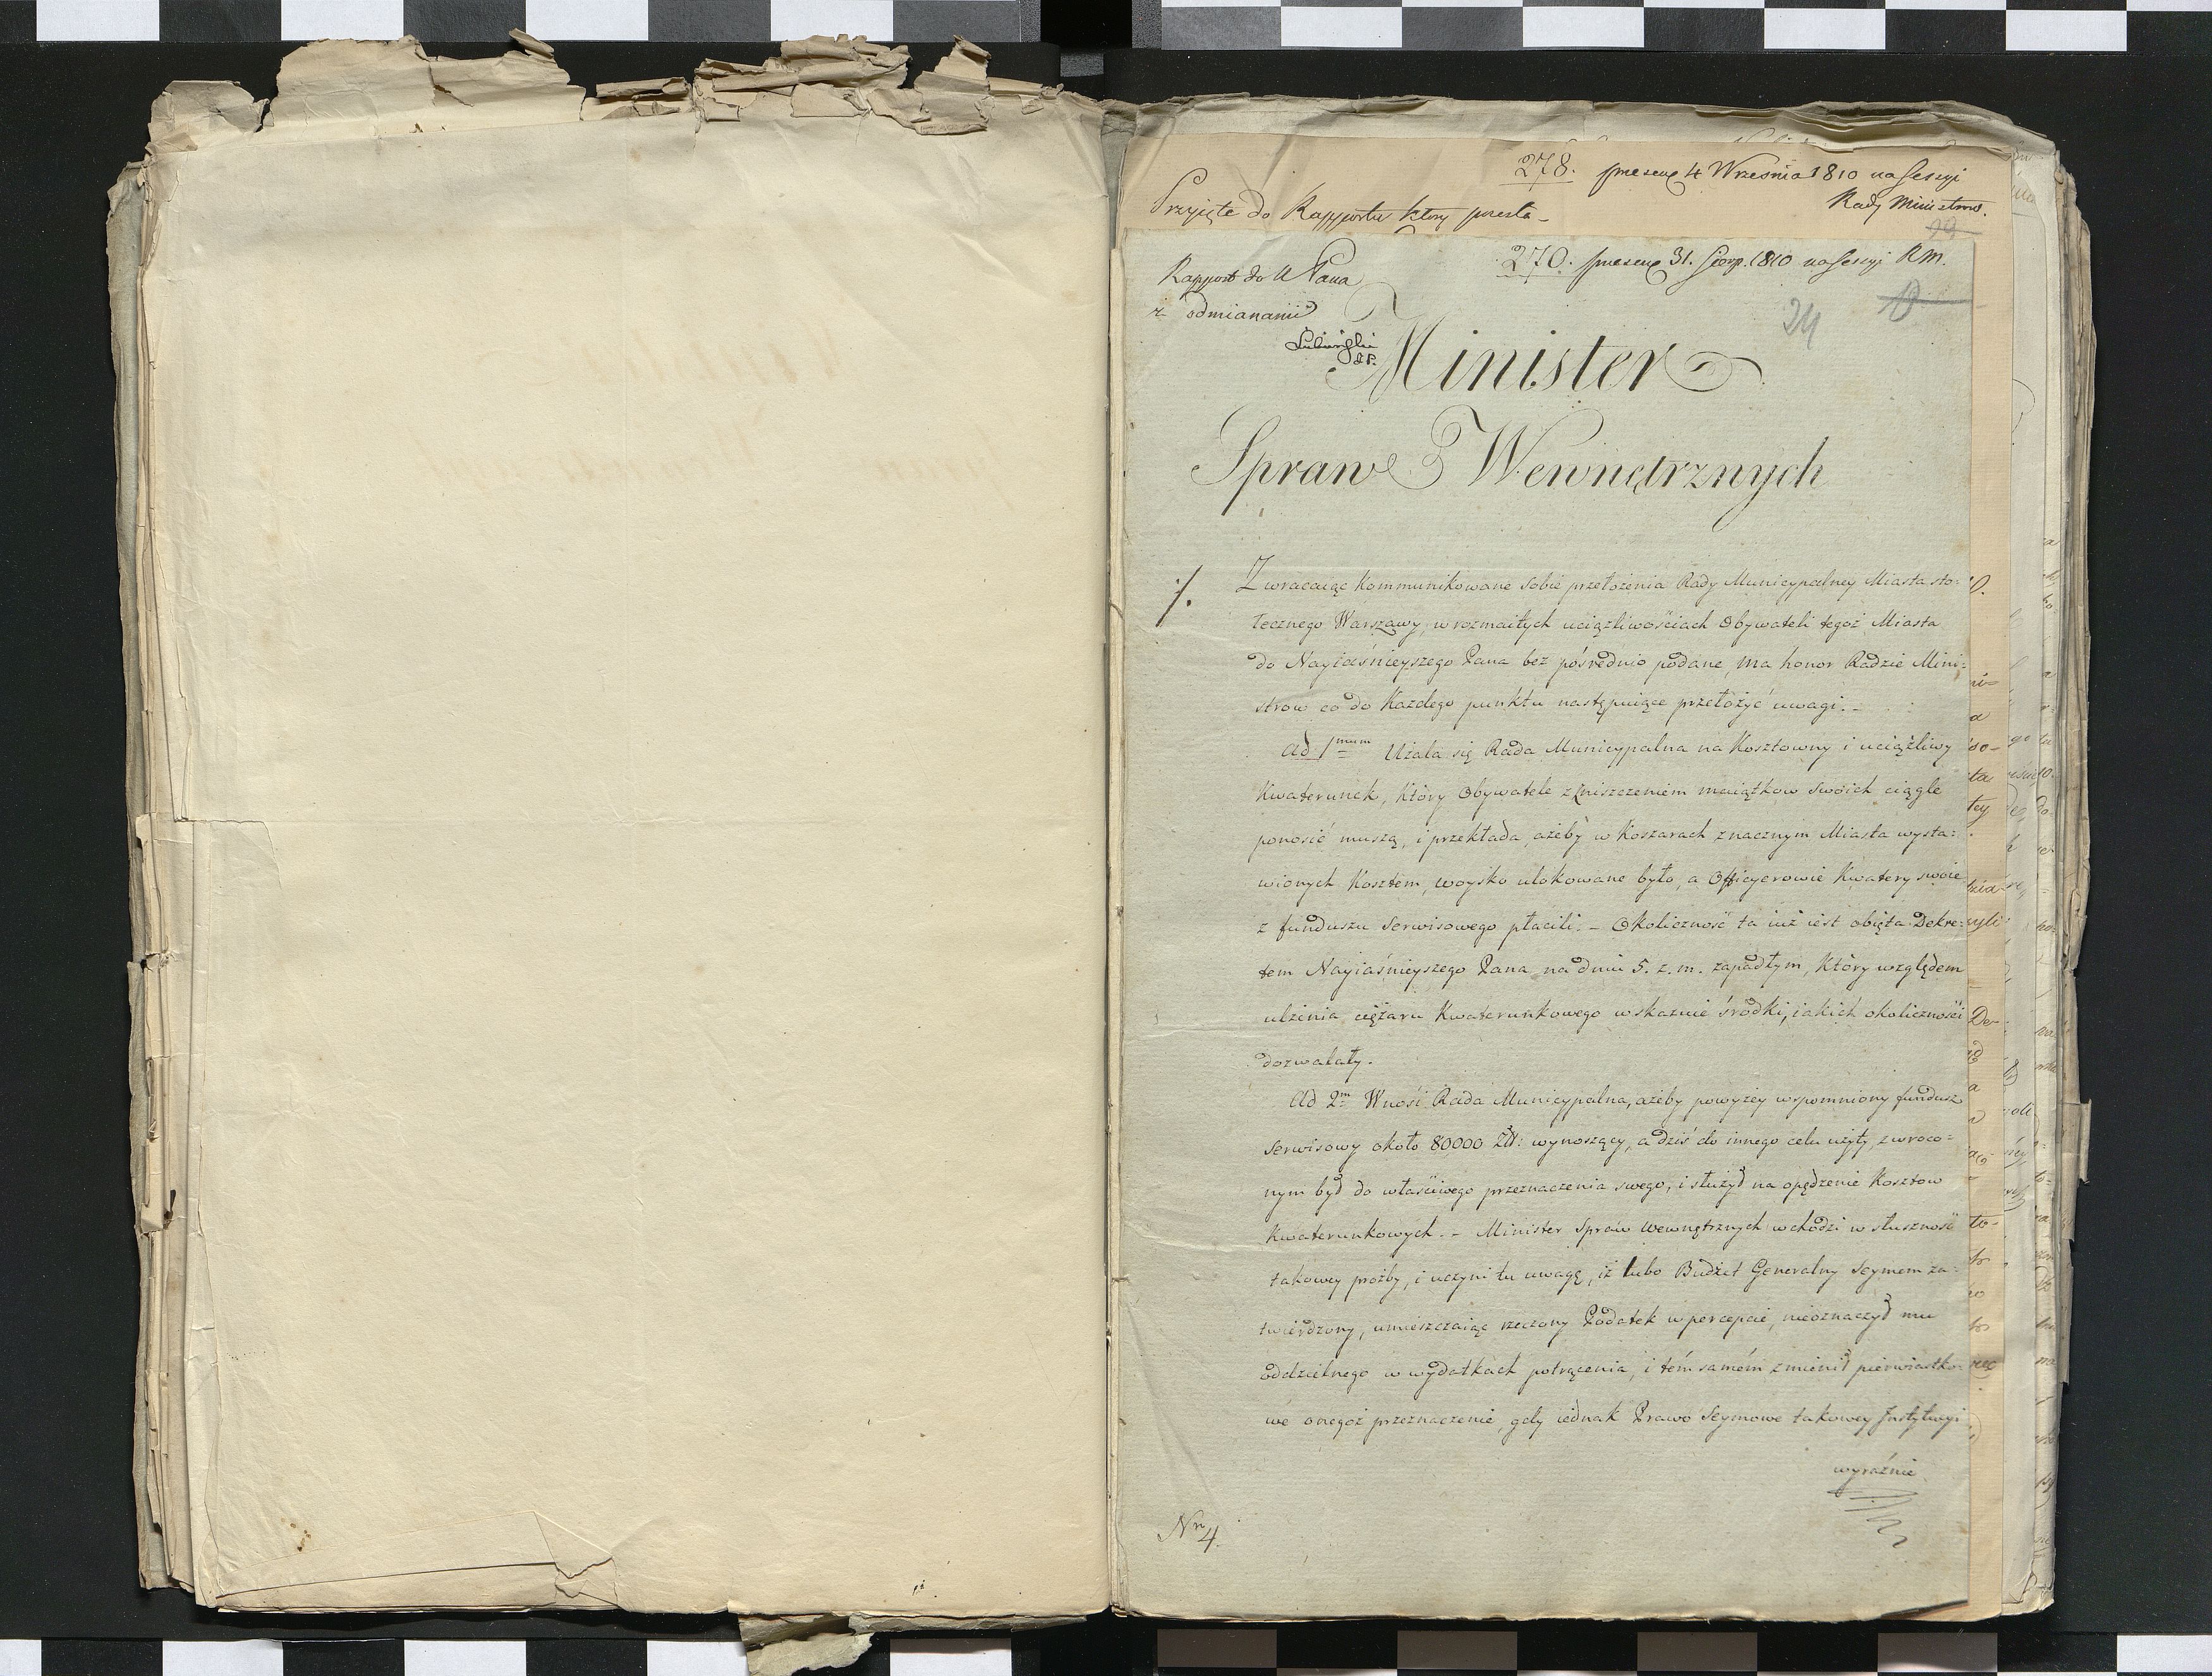 278. 4 Września 1810 na Sessyi
Rady Ministrow.
Przyięte do Rapportu ktory
270. 31. Sierp. 1810 na Sessyi RM.
Rapport do N Pana
z odmianami
24
Minister
Spraw Wewnętrznych
Zwracaiąc kommunikowane sobie przełożenia Rady Municypalney Miasta sto-
łecznego Warszawy, w rozmaitych uciążliwościach Obywateli tegoż Miasta
do Nayiaśnieyszego Pana bez pośrednio podane, ma honor Radzie Mini-
strow co do Każdego punktu następuiące przełożyć uwagi. –
Ad 1mum Użala się Rada Municypalna na Kosztowny i uciążliwy
Kwaterunek, Który Obywatele z zniszczeniem maiątkow swoich ciągle
ponosić muszą, i przekłada, ażeby w Koszarach znacznym Miasta wysta-
wionych Kosztem, woysko ulokowane było, a Officyerowie Kwatery swoie
z funduszu Serwisowego płacili. – Okoliczność ta iuż iest obięta Dekre-
tem Nayiaśnieyszego Pana na dniu 5. z. m. zapadłym, Który względem
ulżenia ciężaru Kwaterunkowego wskazuie środki, iakich okoliczności
dozwalały.
Ad 2m Wnosi Rada Municypalna, ażeby powyżey wspomniony fundusz
Serwisowy około 80000 Zł: wynoszący, a dziś do innego celu użyty, zwroco-
nym był do właściwego przeznaczenia swego, i służył na opędzenie Kosztow
Kwaterunkowych. – Minister Spraw Wewnętrznych wchodzi w słuszność
takowey prośby, i uczyni tu uwagę, iż lubo Budżet Generalny Seymem za-
twierdzony, umieszczaiąc rzeczony Podatek w percepcie, nieoznaczył mu
oddzielnego w wydatkach potrącenia, i tém samém zmienił pierwiastko-
we onegoż przeznaczenie, gdy iednak Prawo Seymowe takowey Instytucyi
wyraźnie
Nro 4.